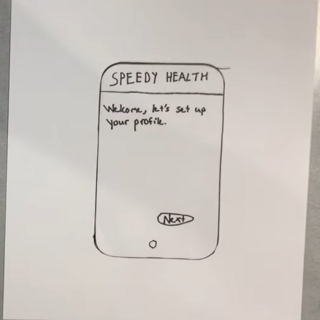 SPEEDY HEALTH
Welcome, let's set up
your profile.
Next